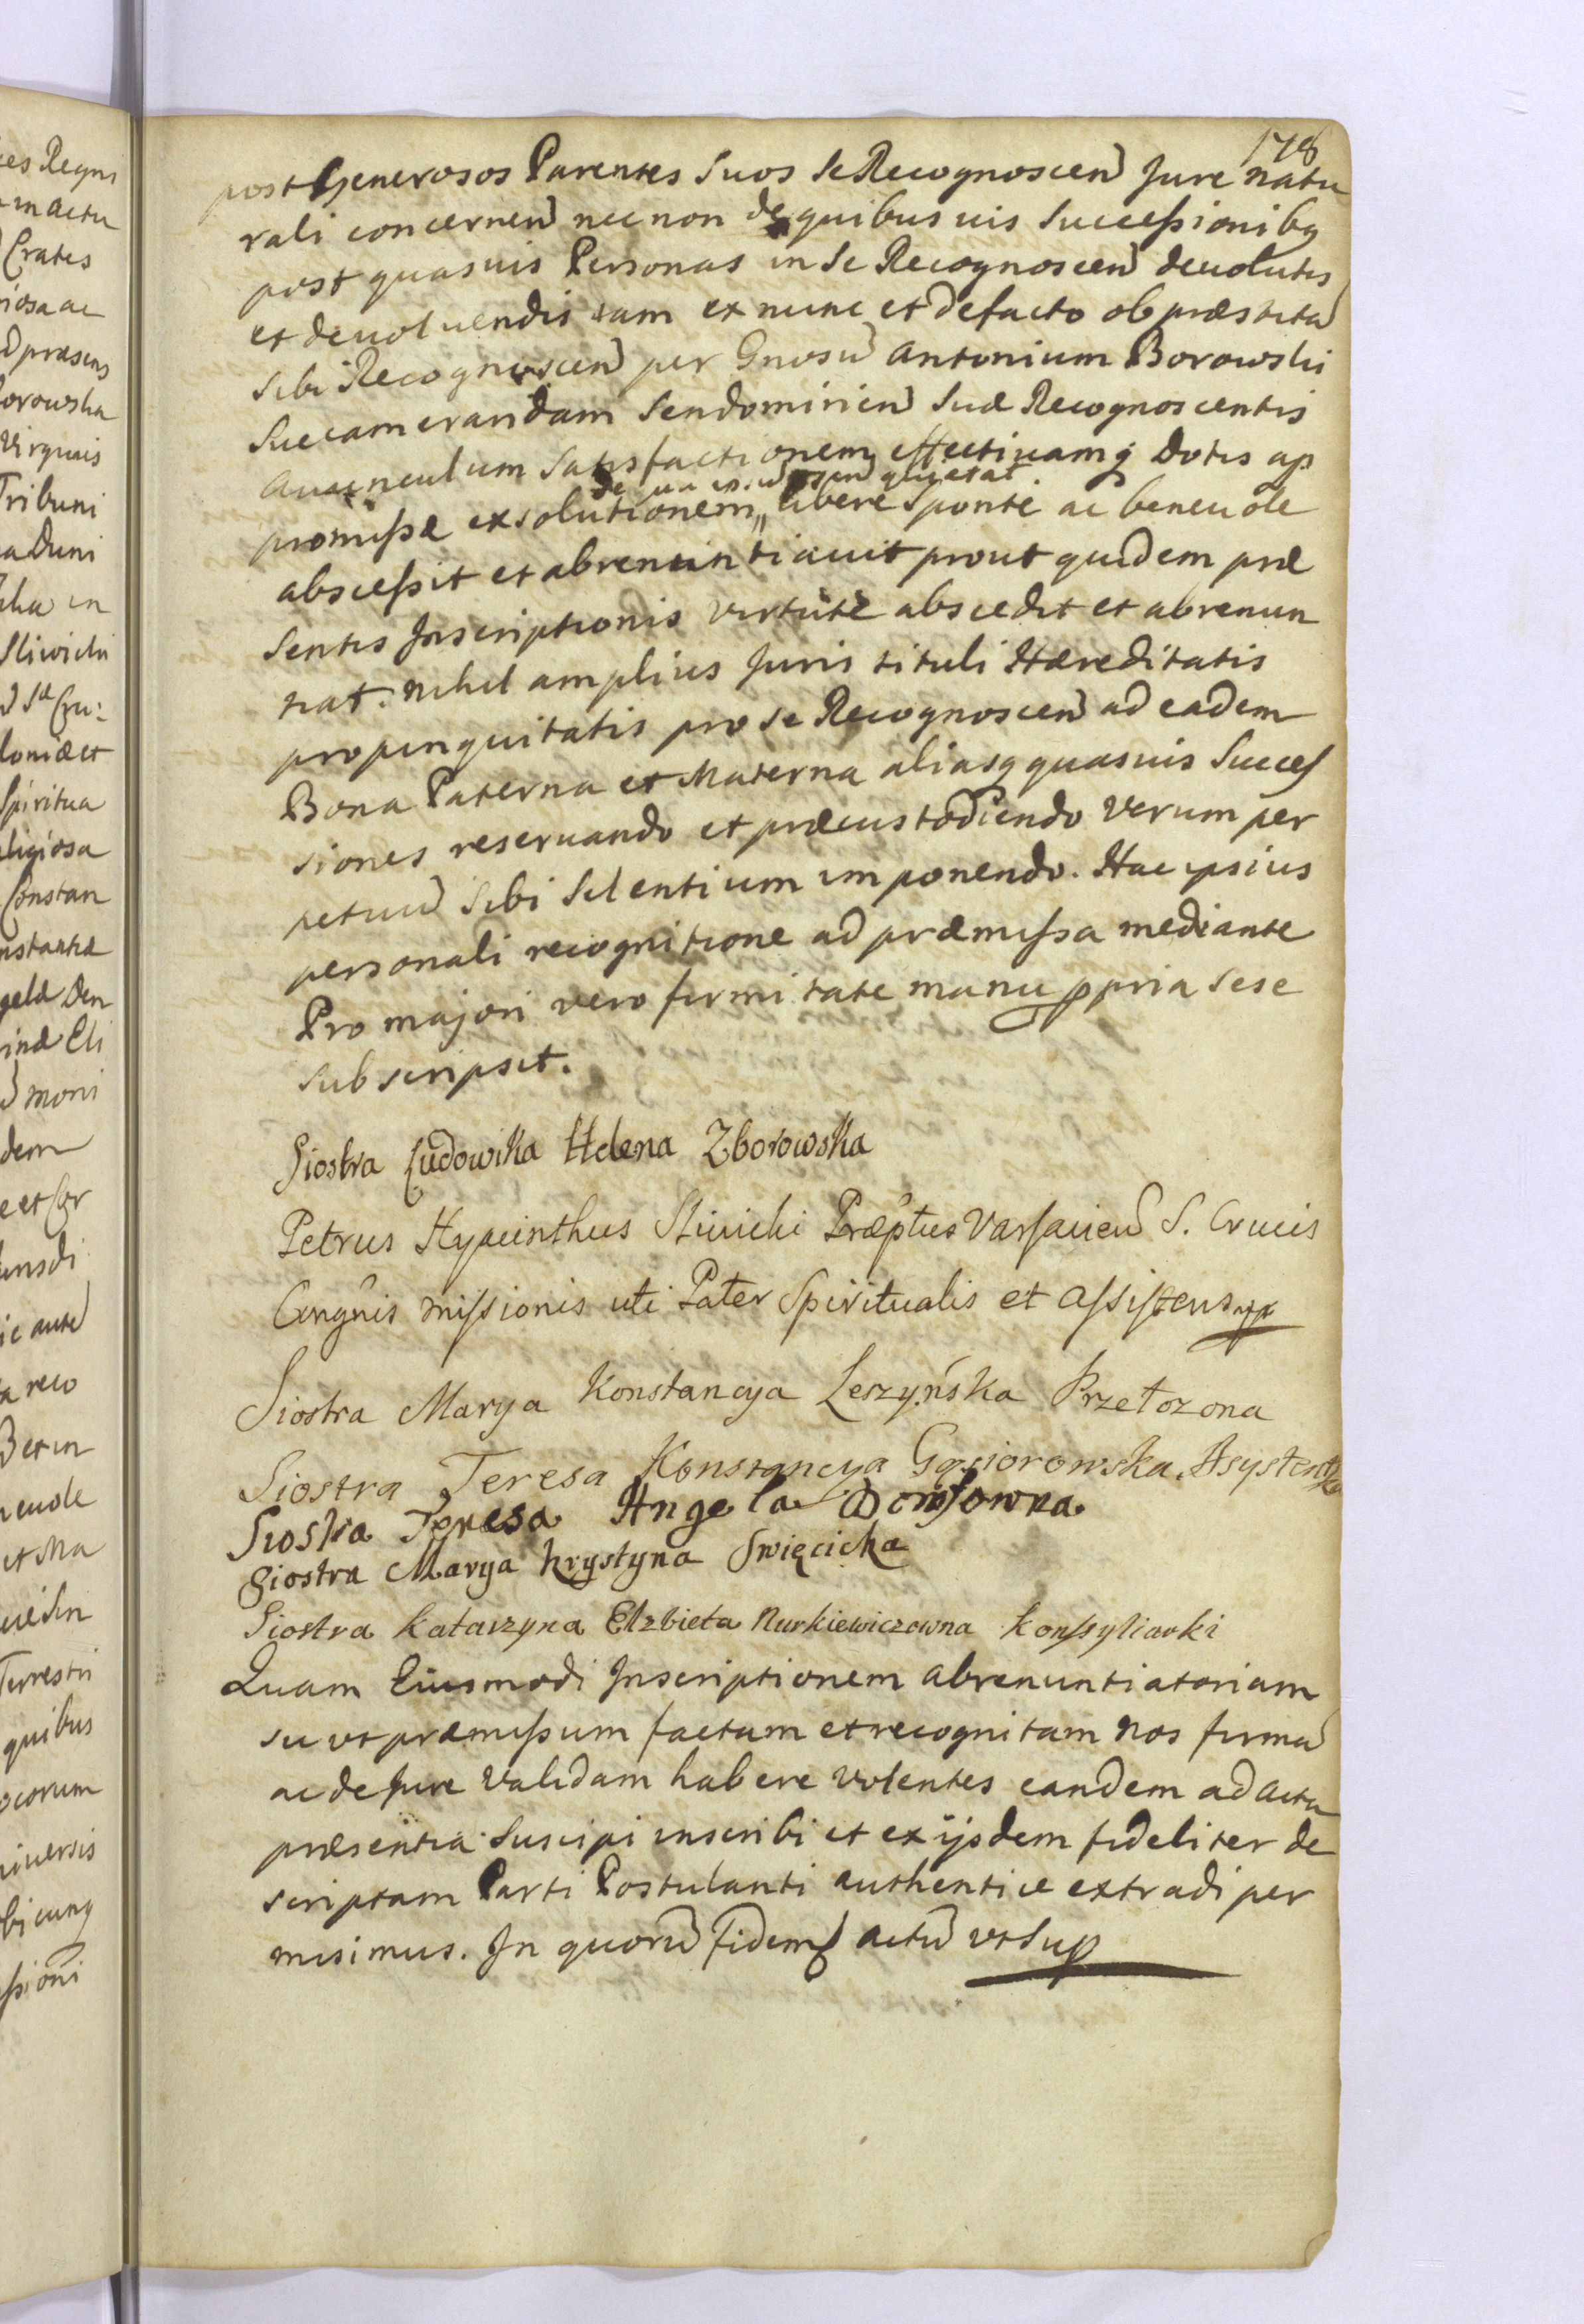 178
post Generosos Parentes Suos Se Recognoscen Jure natu
rali concernen nec non de quibusuis Successionibq
post quasuis Personas in Se Recognoscen deuolutis
et deuoluendis tam ex nunc et defacto ob præstita
Sibi Recognoscen per Gnosu Antonium Borowski
Succamerandam Sendomirien Suæ Recognoscentis
Auunculum Satisfactionem effectiuamq Dotis ap
de quietat
promissæ exsolutionem libere sponte ac beneuole
abscessit et abrenuntiauit prout quidem præ
sentis Inscriptionis virtute abscedit et abrenun
tiat. nihil amplius Juris tituli Hæreditatis
propinquitatis pro se Recognoscen ad eadem
Bona Paterna et Materna aliasq quasuis Succes
siones reseruando et præcustodiendo Verum per
petuu Sibi Silentium imponendo. Hac ipsius
personali recognitione ad præmissa mediante
Pro majori vero firmitate manu ppria sese
subscripsit.
Siostra Ludowika Helena Zborowska
Petrus Hyacinthus Sliwicki Præptus Varsavien S. Crucis
Congnis missionis uti Pater Spiritualis et Assistens mp
Siostra Marya Konstancya Leszyńska Przełozona
Siostra Teresa Konstancya Gąsiorowska Asystentka
Siostra Teresa Angela Denfowna
Siostra Marya Krystyna Swięcicka
Siostra Katarzyna Elzbieta Nurkiewiczowna Konssyliarki
Quam Eiusmodi Inscriptionem abrenuntiatoriam
sic ut præmissum factam et recognitam Nos firma
ac de Jure Validam habere volentes eandem ad acta
præsentia suscipi inscribi et ex ijsdem fideliter de
scriptam Parti Postulanti authentice extradi per
misimus. In quoru fidem actu ut Sup